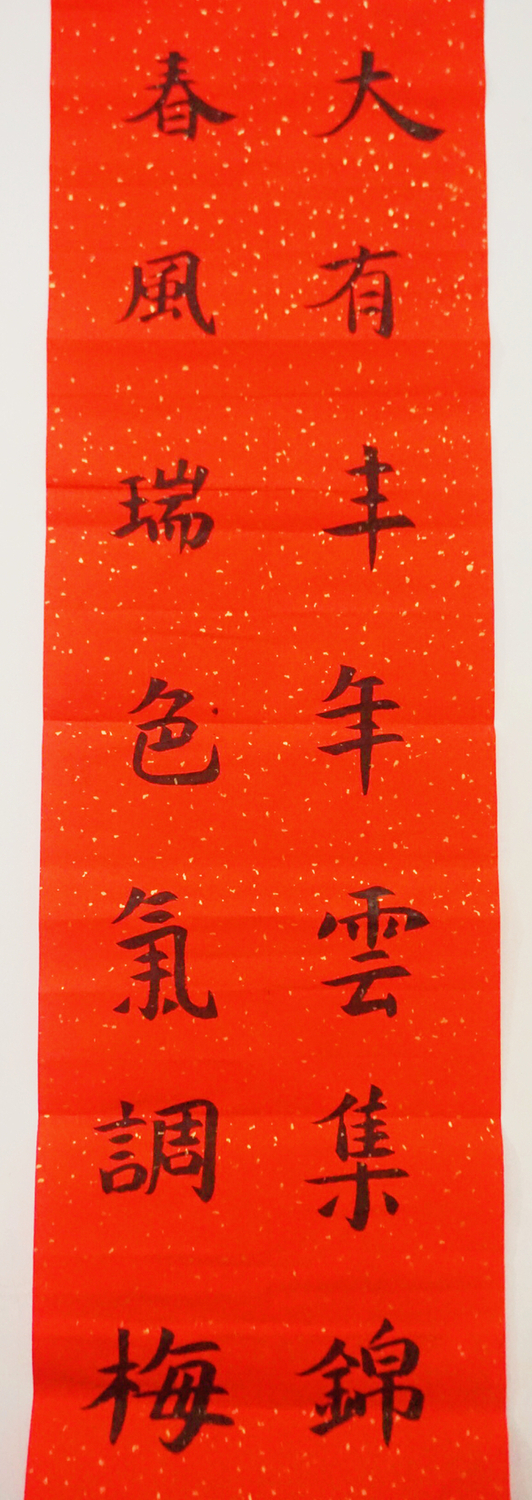 大有丰年雲集錦
春風瑞色氣調梅